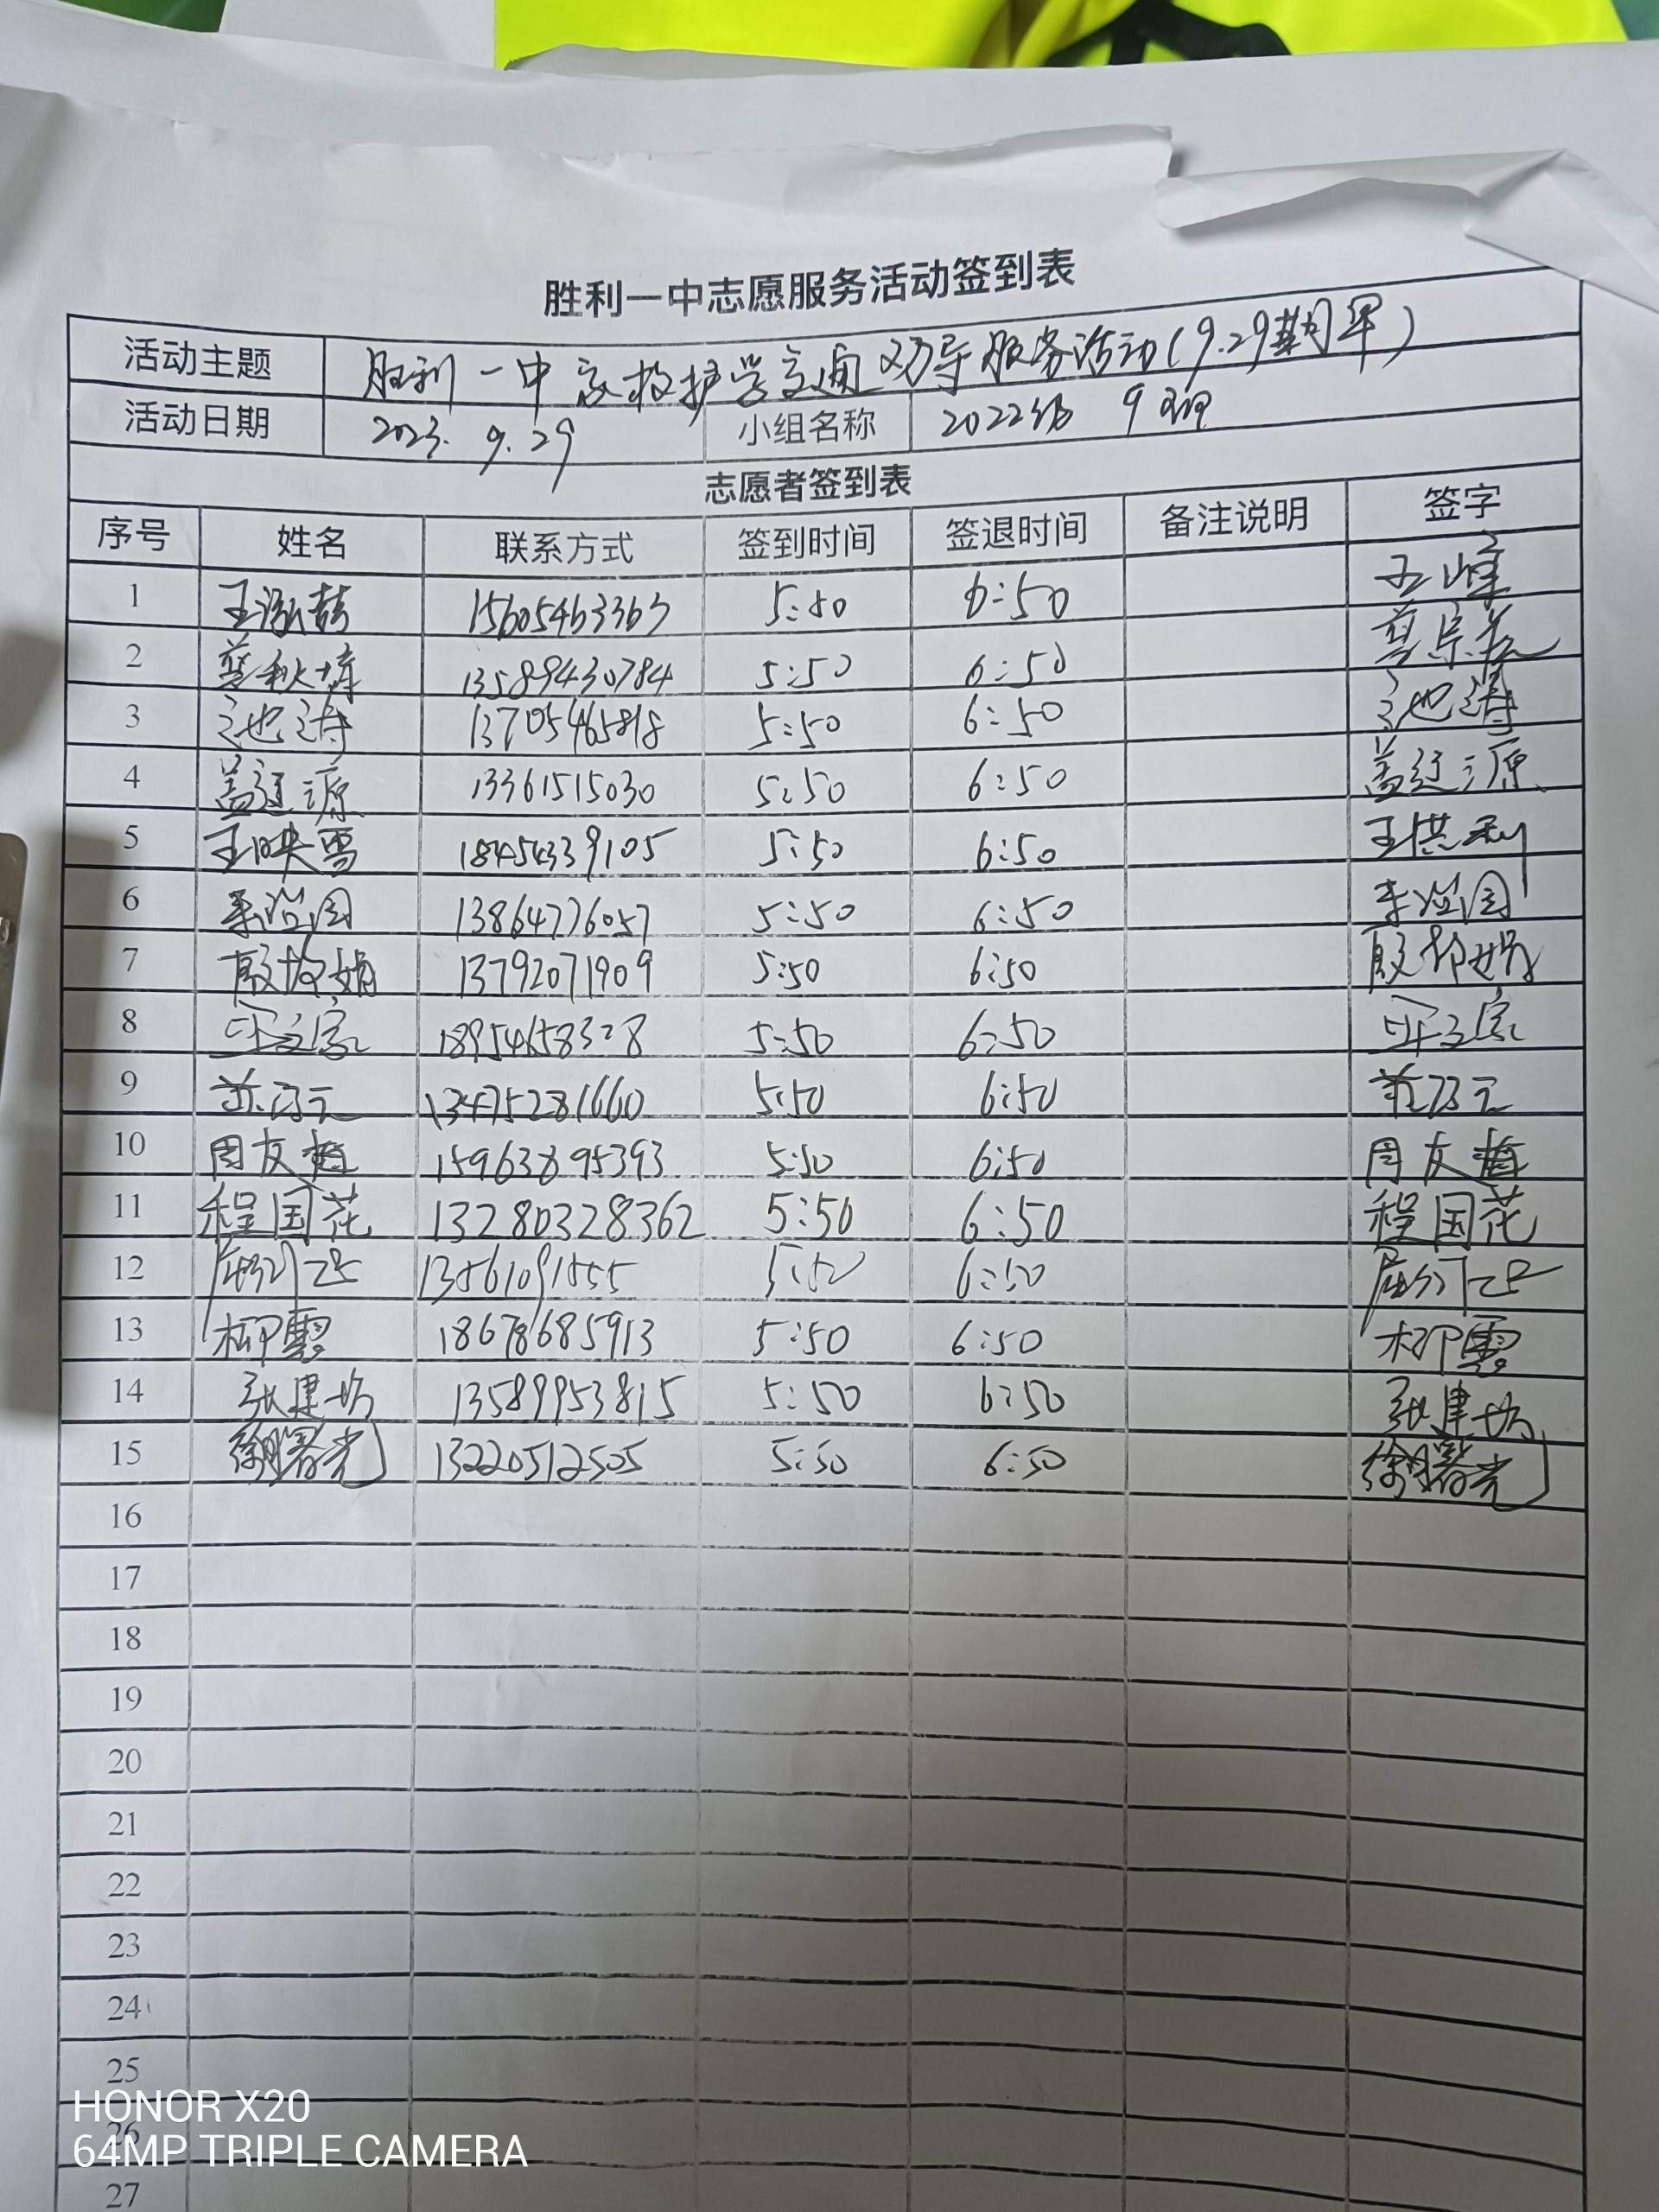 胜利一中志愿服务活动签到表
活动主题 胜利一中家校护学交通劝导服务活动(9.29期早)
活动日期 2023.9.29 小组名称 2022级 9班
志愿者签到表
序号 姓名 联系方式 签到时间 签退时间 备注说明 签字
1 王泓喆 15605463363 5:50 6:50 王峰
2 綦秋 13589430784 5:50 6:50 綦宗
3 池涛 13705465818 5:50 6:50 池涛
4 盖廷源 13361515030 5:50 6:50 盖廷源
5 王映雪 18454339105 5:50 6:50 王洪利
6 李谥国 13864776057 5:50 6:50 李谥国
7 殷 娟 13792071909 5:50 6:50 殷 娟
8 家 18954658328 5:50 6:50 家
9 万元 13475281660 5:50 6:50 万元
10 周友 15963895393 5:50 6:50 周友
11 程国花 13280328362 5:50 6:50 程国花
12 5:50 6:50
13 柳霞 18678685913 5:50 6:50 柳霞
14 张建坊 13589953815 5:50 6:50 张建坊
15 徐曙光 13220512505 5:50 6:50 徐曙光
16
17
18
19
20
21
22
23
24
25
26
27
HONOR X20
64MP TRIPLE CAMERA